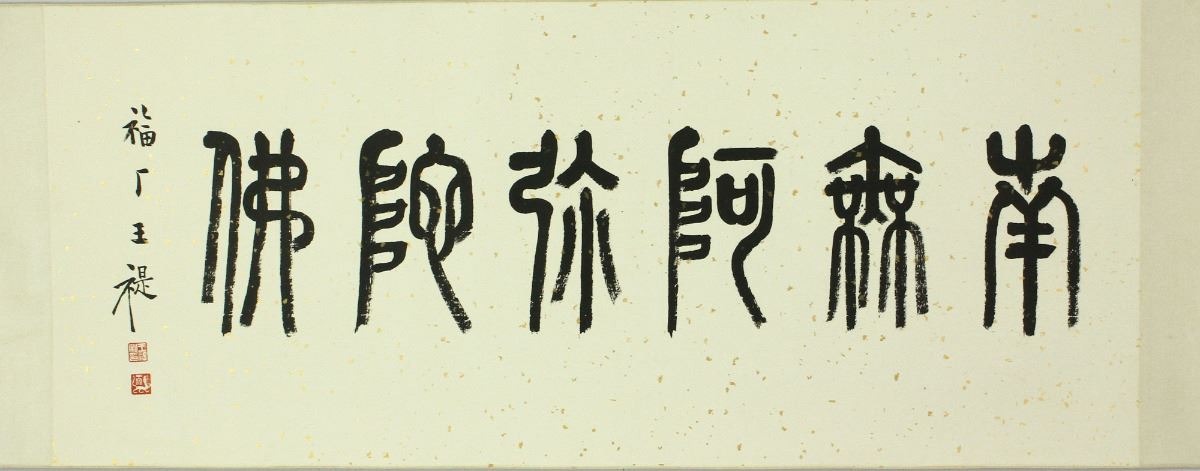 南無阿弥陀佛
福厂王禔